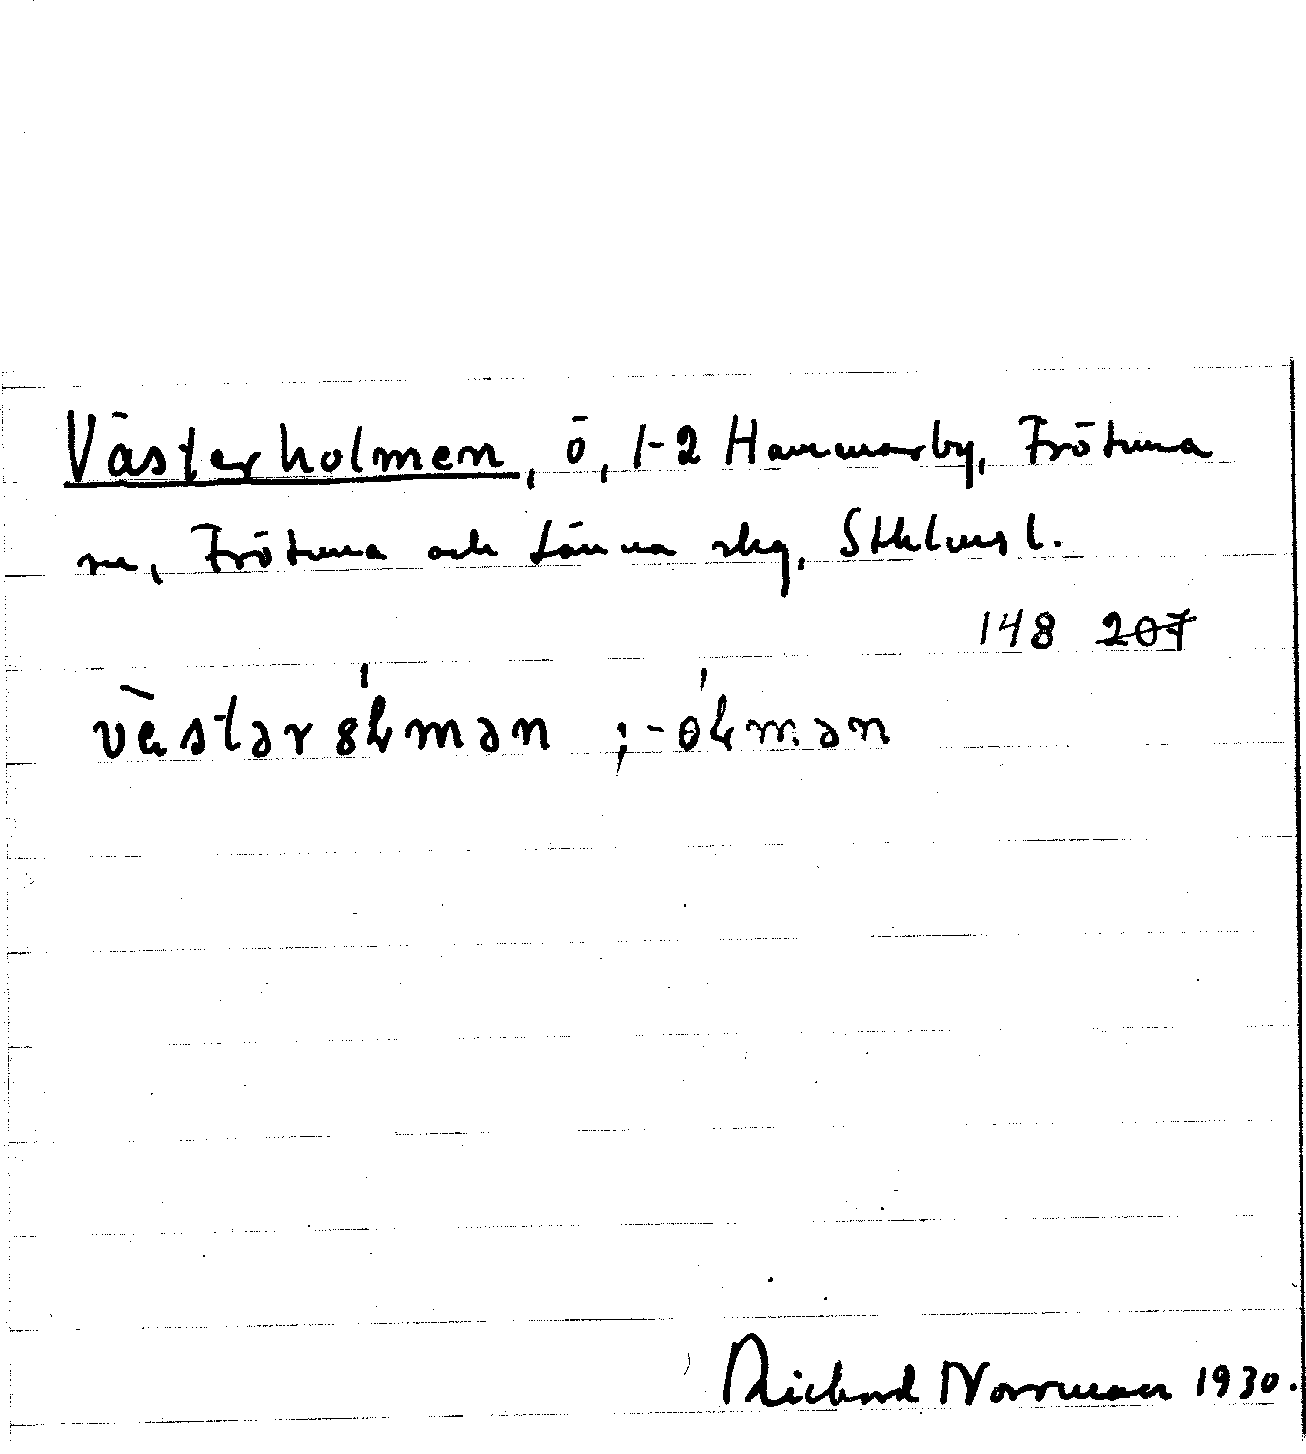 Västerholmen, ö, 1-2 Hammarby, Frötuna
sn, Frötuna och Länna skg, Sthlms l.
148 207
Richard Norrman 1930.